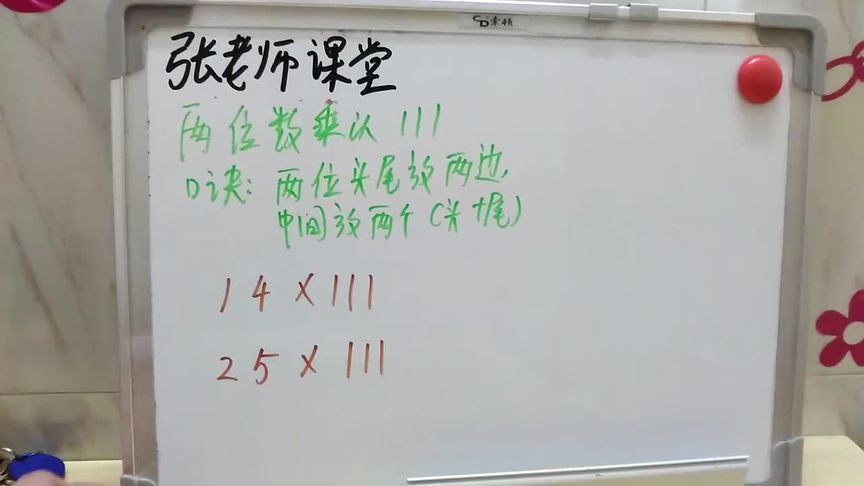 索顿
张老师课堂
两位数乘以111
口诀:两位头尾放两边,
中间放两个(头+尾)
14×111
25×111